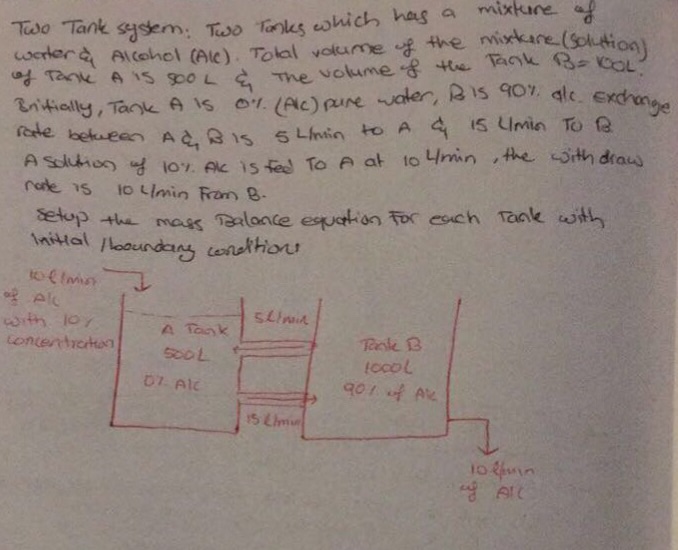 Two Tank system: Two Tanks which has a mixture of
water & Alcohol (Alc). Total volume of the mixture (solution)
of Tank A is 500 L & The volume of the Tank B= 100L.
Initially, Tank A is 0% (Alc) pure water, B is 90% alc. Exchange
rate between A & B is 5 L/min to A & 15 L/min To B
A solution of 10% Alc is fed To A at 10 L/min, the withdraw
rate is 10 L/min From B.
Setup the mass Balance equation For each Tank with
initial /boundary conditions
10 l/min
of Alc
with 10%
concentration
A Tank
500L
0% Alc
5 l/min
15 l/min
Tank B
1000L
90% of Alc
10 l/min
of Alc